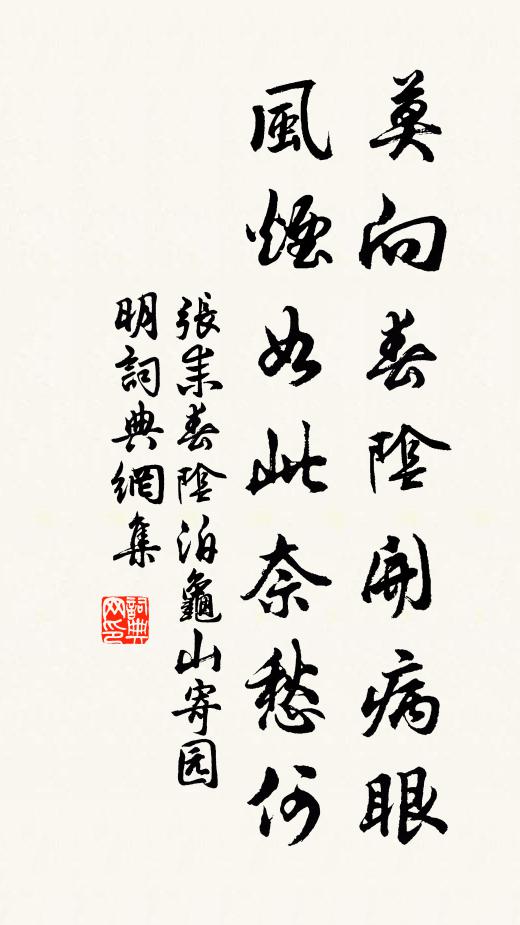 莫向春陰開病眼
風煙如此奈愁何
張耒春陰泊龜山寄园
明詞典網集
詞典
网印